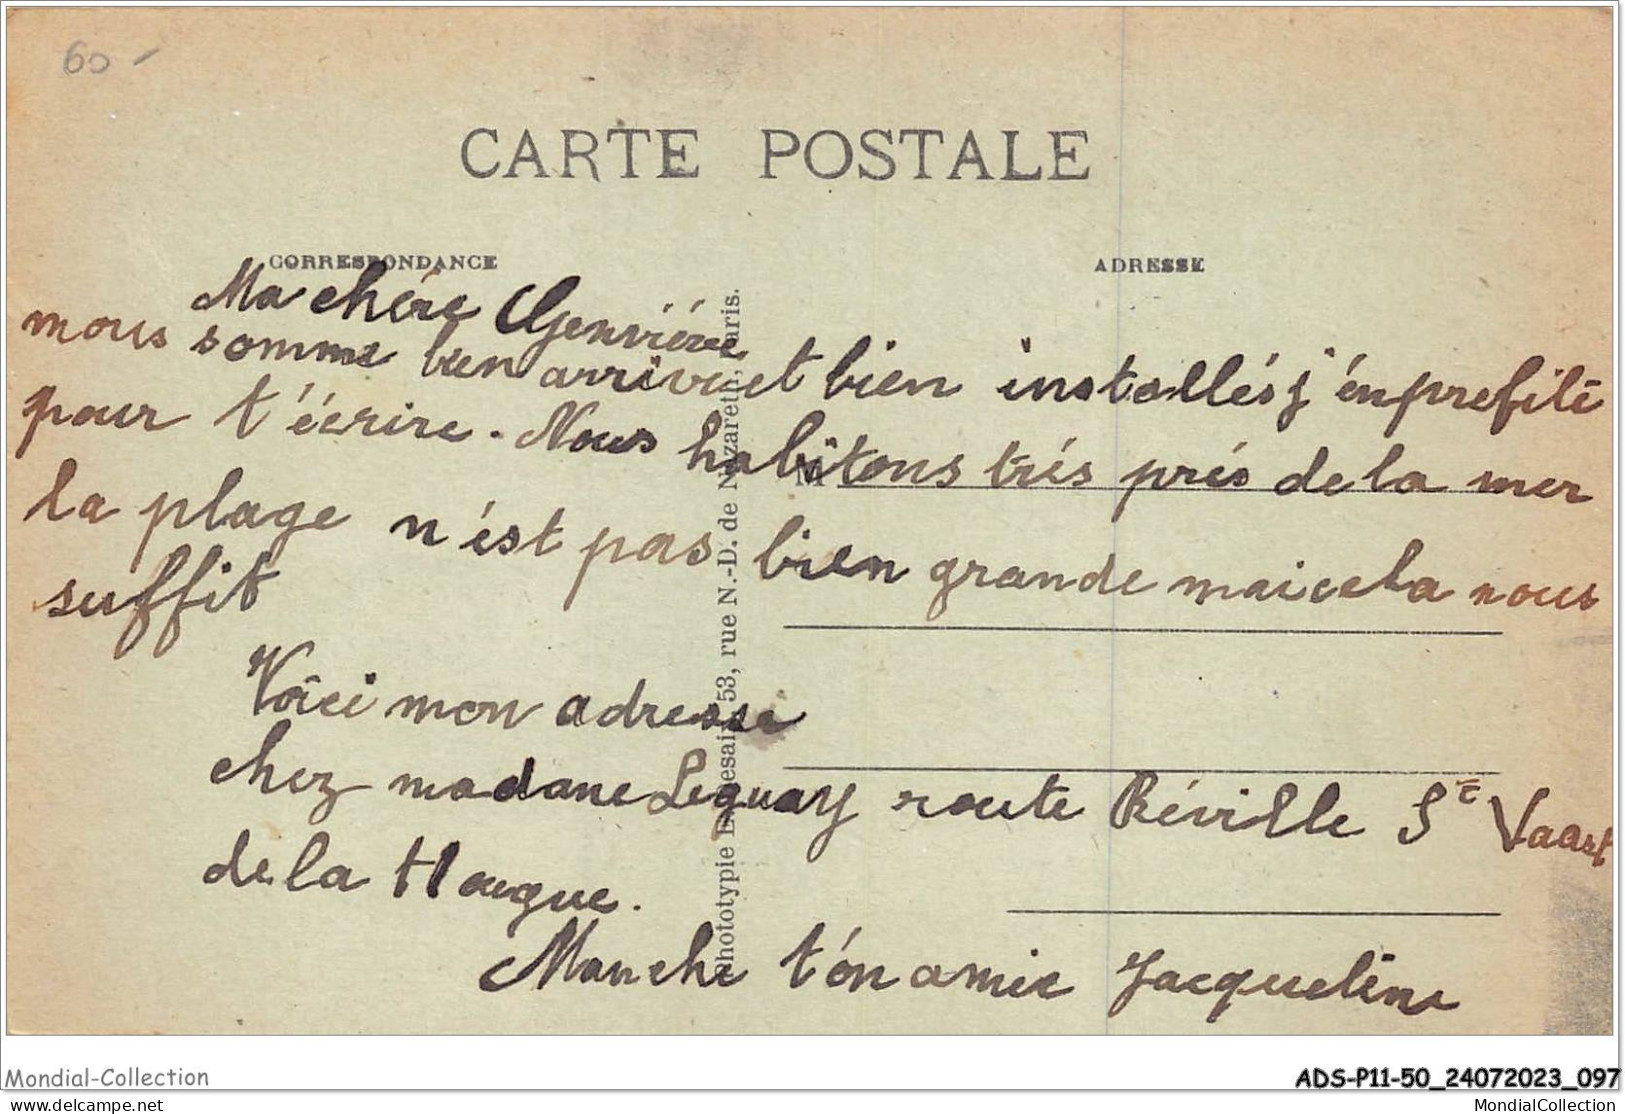 60 -
CARTE POSTALE
CORRESPONDANCE
ADRESSE
Ma chére Genviéve
mous somme bien arrivuet bien installés j'énprefite
pour t'éerire. Nous habîtons trés prés de la mer
La plage n'ést pas bien grande maicela nous
suffit
Voîci mon adresse
chez madaneLeguay route Réville St Vaast
de la Hougue.
Manche t'ón amie Jacqueline
Phototypie Desaix, 53, rue N.-D. de Nazareth, Paris.
Mondial-Collection
ADS-P11-50_24072023_097
delcampe.net
MondialCollection